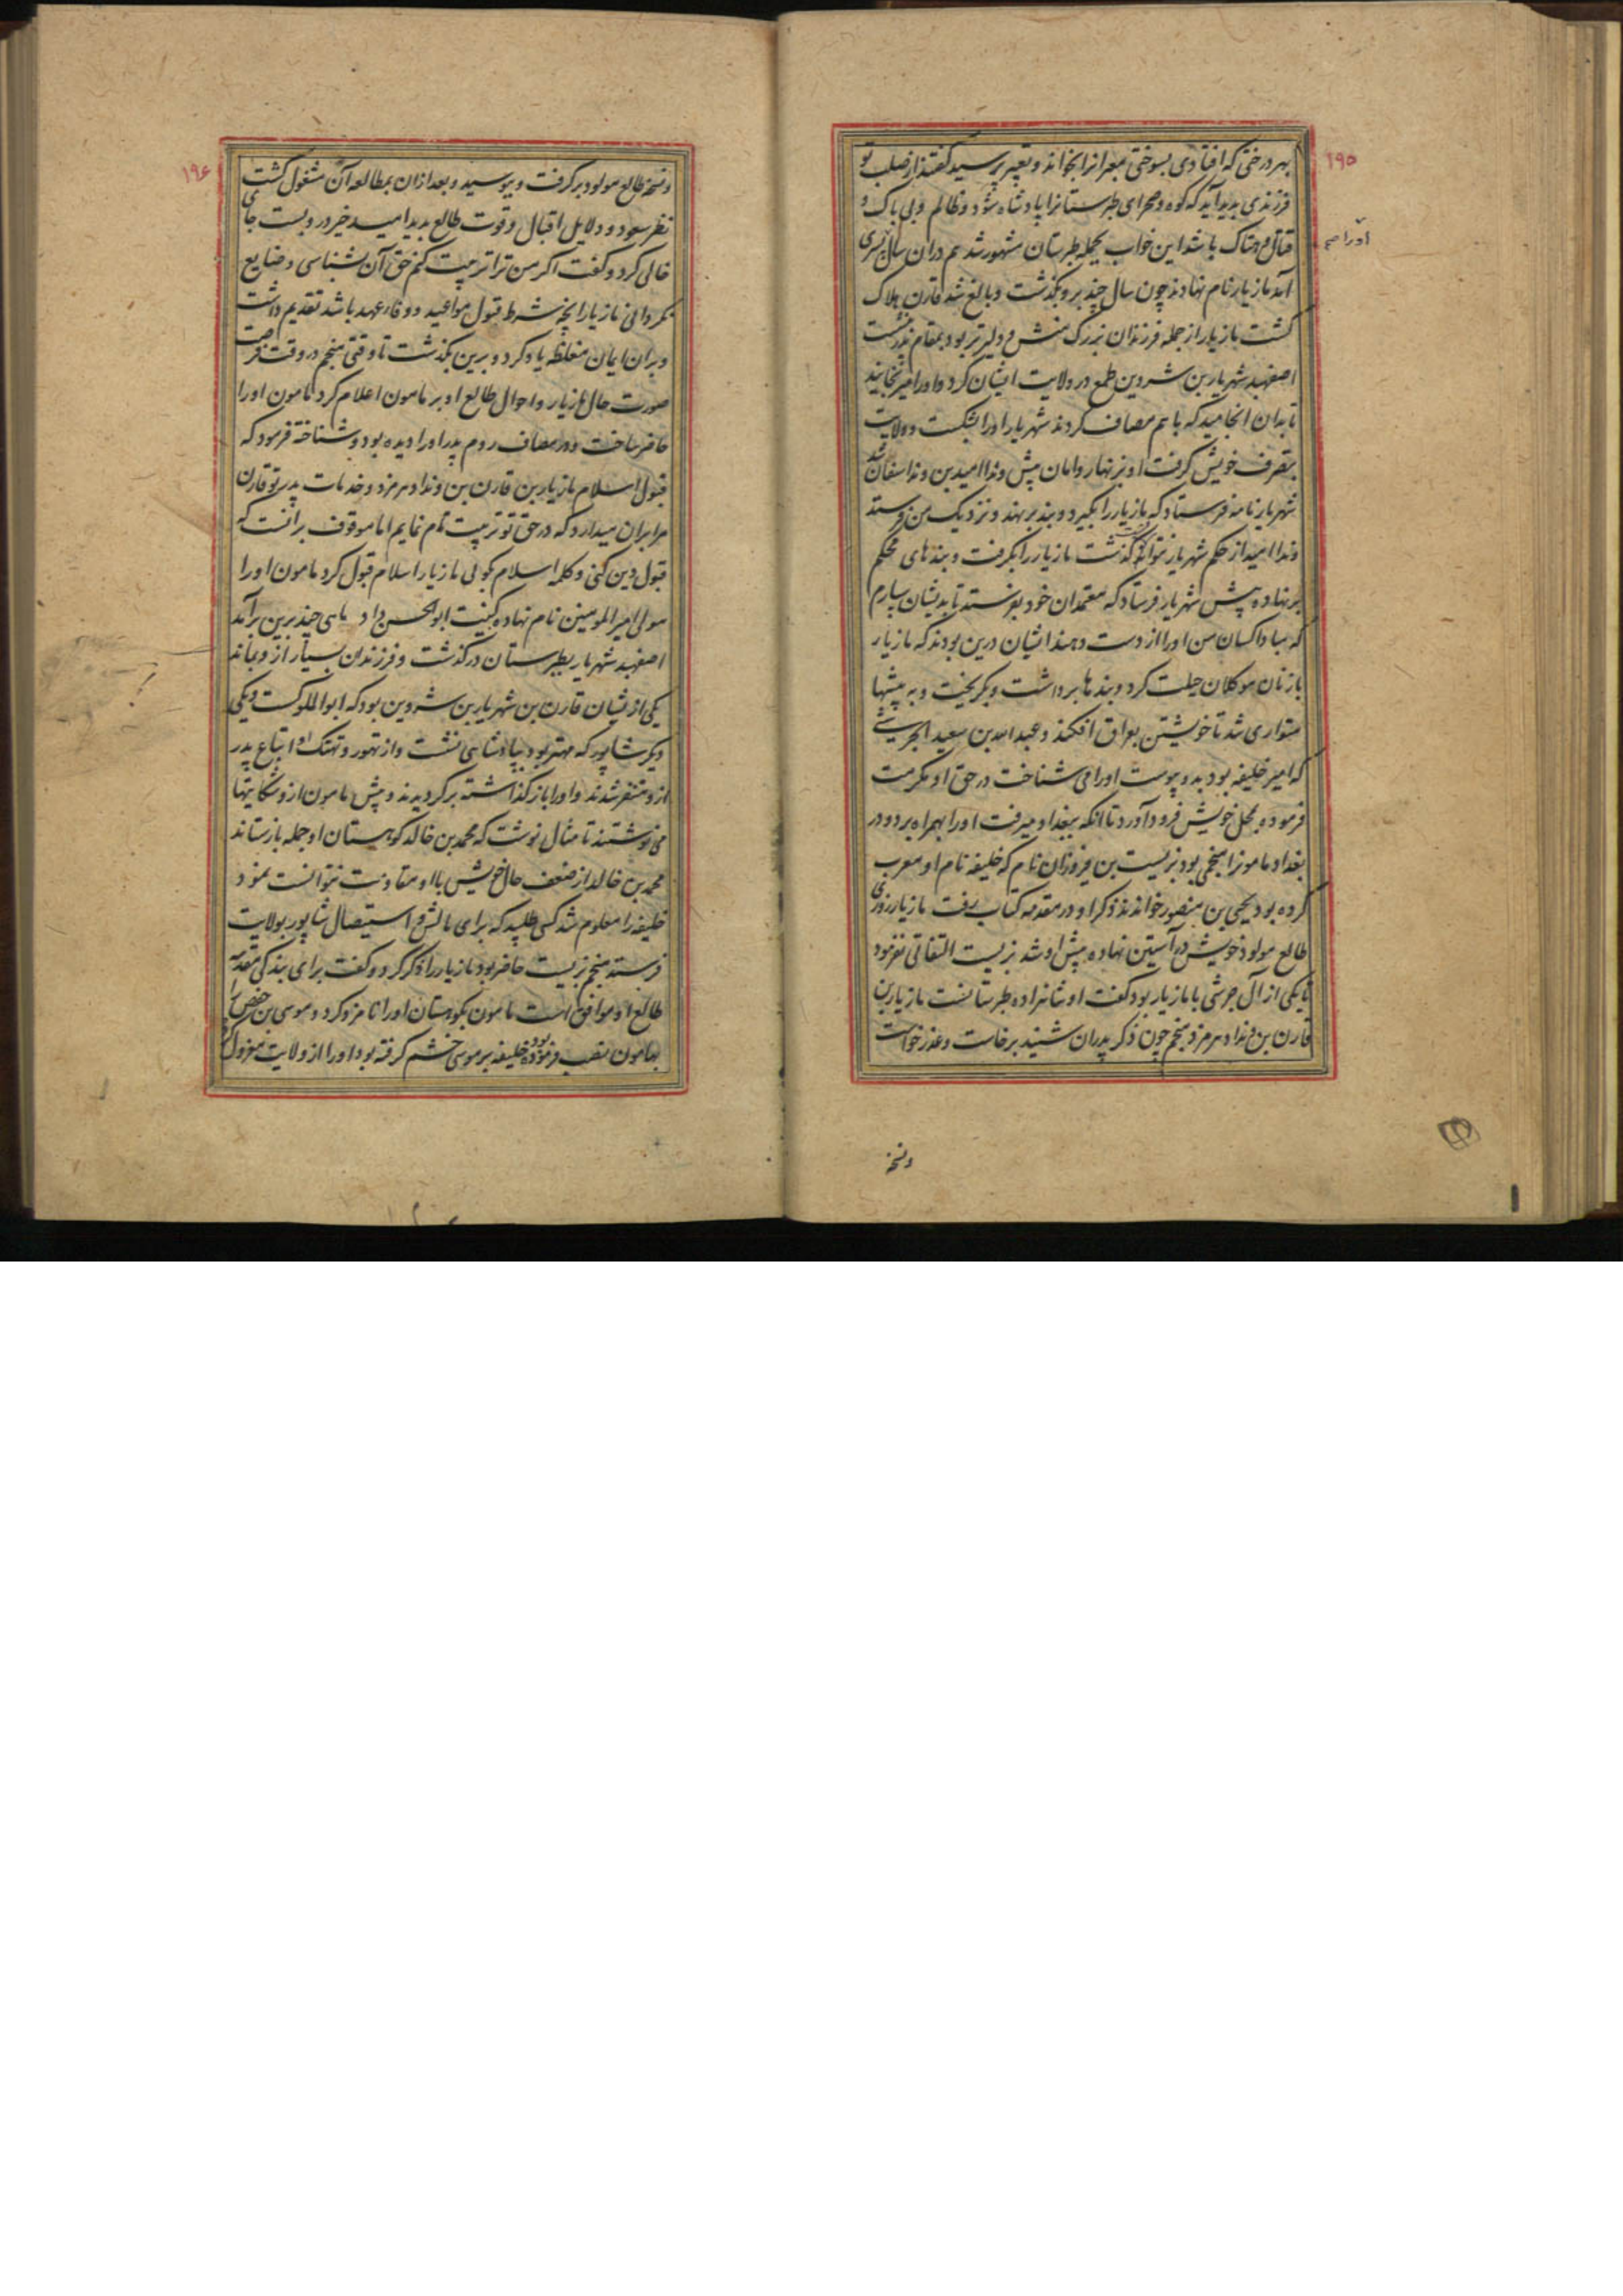 ۱۹۵
بهر درختی که افتادی بسوختی معبرانرا بخواند و تعبیر پرسید گفتند از صلب تو
فرزندی پدید آید که کوه و صحرای طبرستانرا پادشاه شود و ظالم و بی باک و
قتال و هتاک باشد این خواب بجمله طبرستان مشهور شد هم در آن سال پسری
اورا صح
آمد مازیار نام نهادند چون سال چند برو بگذشت و بالغ شد قارن هلاک
گشت مازیار از جمله فرزندان بزرگ منش و دلیرتر بود بمقام پدر نشست
اصفهبد شهریار بن شروین طمع در ولایت ایشان کرد و اورا میرنجانید
تا بدان انجامید که با هم مصاف کردند شهریار اورا بشکست و ولایت
بتصرف خویش گرفت او بزنهار و امان پیش ونداامید بن ونداسفان شد
شهریار نامه فرستاد که مازیار را بگیرد و بند برنهد و نزدیک من فرستد
ونداامید از حکم شهریار نتوانست گذشت مازیار را بگرفت و بندهای محکم
برنهاده پیش شهریار فرستاد که معتمدان خود بفرستد تا بدیشان سپارم
که مبادا کسان من اورا از دست دهند ایشان درین بودند که مازیار
با زنان موکلان حیلت کرد و بندها برداشت و بگریخت و به بیشها
متواری شد تا خویشتن بعراق افکند و عبدالله بن سعید الجرشی
که امیر خلیفه بود بدو پیوست اورا می شناخت در حق او مکرمت
فرموده بمحل خویش فرود آورد تا آنکه ببغداد میرفت اورا بهمراه برد و در
بغداد مامونرا منجمی بود بزیست بن فیروزان نام که خلیفه نام او معرب
کرده بود یحیی بن منصور خواندند ذکر او در مقدمه کتاب رفت مازیار روزی
طالع مولود خویش در آستین نهاده پیش او شد بزیست التفاتی نفرمود
تا یکی از آل جرشی با مازیار بود گفت او شاهزاده طبرستانست مازیار بن
قارن بن ونداد هرمزد منجم چون ذکر پدران شنید برخاست و عذر خواست
ونسخه
۱۹۶
ونسخه طالع مولود بر گرفت و ببوسید و بعد از آن بمطالعه آن مشغول گشت
نظر سعود و دلایل اقبال و قوت طالع بدید امید خیر درو بست جای
خالی کرد و گفت اگر من ترا تربیت کنم حق آن بشناسی و ضایع
نگردانی مازیار آنچه شرط قبول مواعید و وفاء عهد باشد تقدیم داشت
و بران ایمان مغلظه یاد کرد و برین بگذشت تا وقتی منجم در وقت فرصت
صورت حال مازیار و احوال طالع او بر مامون اعلام کرد مامون اورا
حاضر ساخت و در مصاف روم پدر اورا دیده بود و شناخته فرمود که
قبول اسلام مازیار بن قارن بن ونداد هرمزد و خدمات پدر تو قارن
مرا بران میدارد که در حق تو تربیت تمام نمایم اما موقوف برآنست که
قبول دین کنی و کلمه اسلام گویی مازیار اسلام قبول کرد مامون اورا
مولی امیر المومنین نام نهاده کنیت ابوالحسن داد ماهی چند برین برآمد
اصفهبد شهریار بطبرستان درگذشت و فرزندان بسیار ازو بماند
یکی ازیشان قارن بن شهریار بن شروین بود که ابوالملوکست و یکی
دیگر شاپور که مهتر بود بپادشاهی نشست و از تهور و تهتک او اتباع پدر
ازو متنفر شدند و اورا باز گذاشته برگردیدند و پیش مامون ازو شکایتها
می نوشتند تا مثال نوشت که محمد بن خالد کوهستان او جمله بازستاند
محمد بن خالد از ضعف حال خویش با او مقاومت نتوانست نمود
خلیفه را معلوم شد کسی طلبید که برای مالش و استیصال شاپور بولایت
فرستد منجم بزیست حاضر بود مازیار را ذکر کرد و گفت برای بندگی مقدسه
طالع او موافق است مامون بکوهستان اورا نامزد کرد و موسی بن حفص را
بهامون نصب فرموده بود خلیفه بر موسی خشم گرفته بود اورا از ولایت معزول